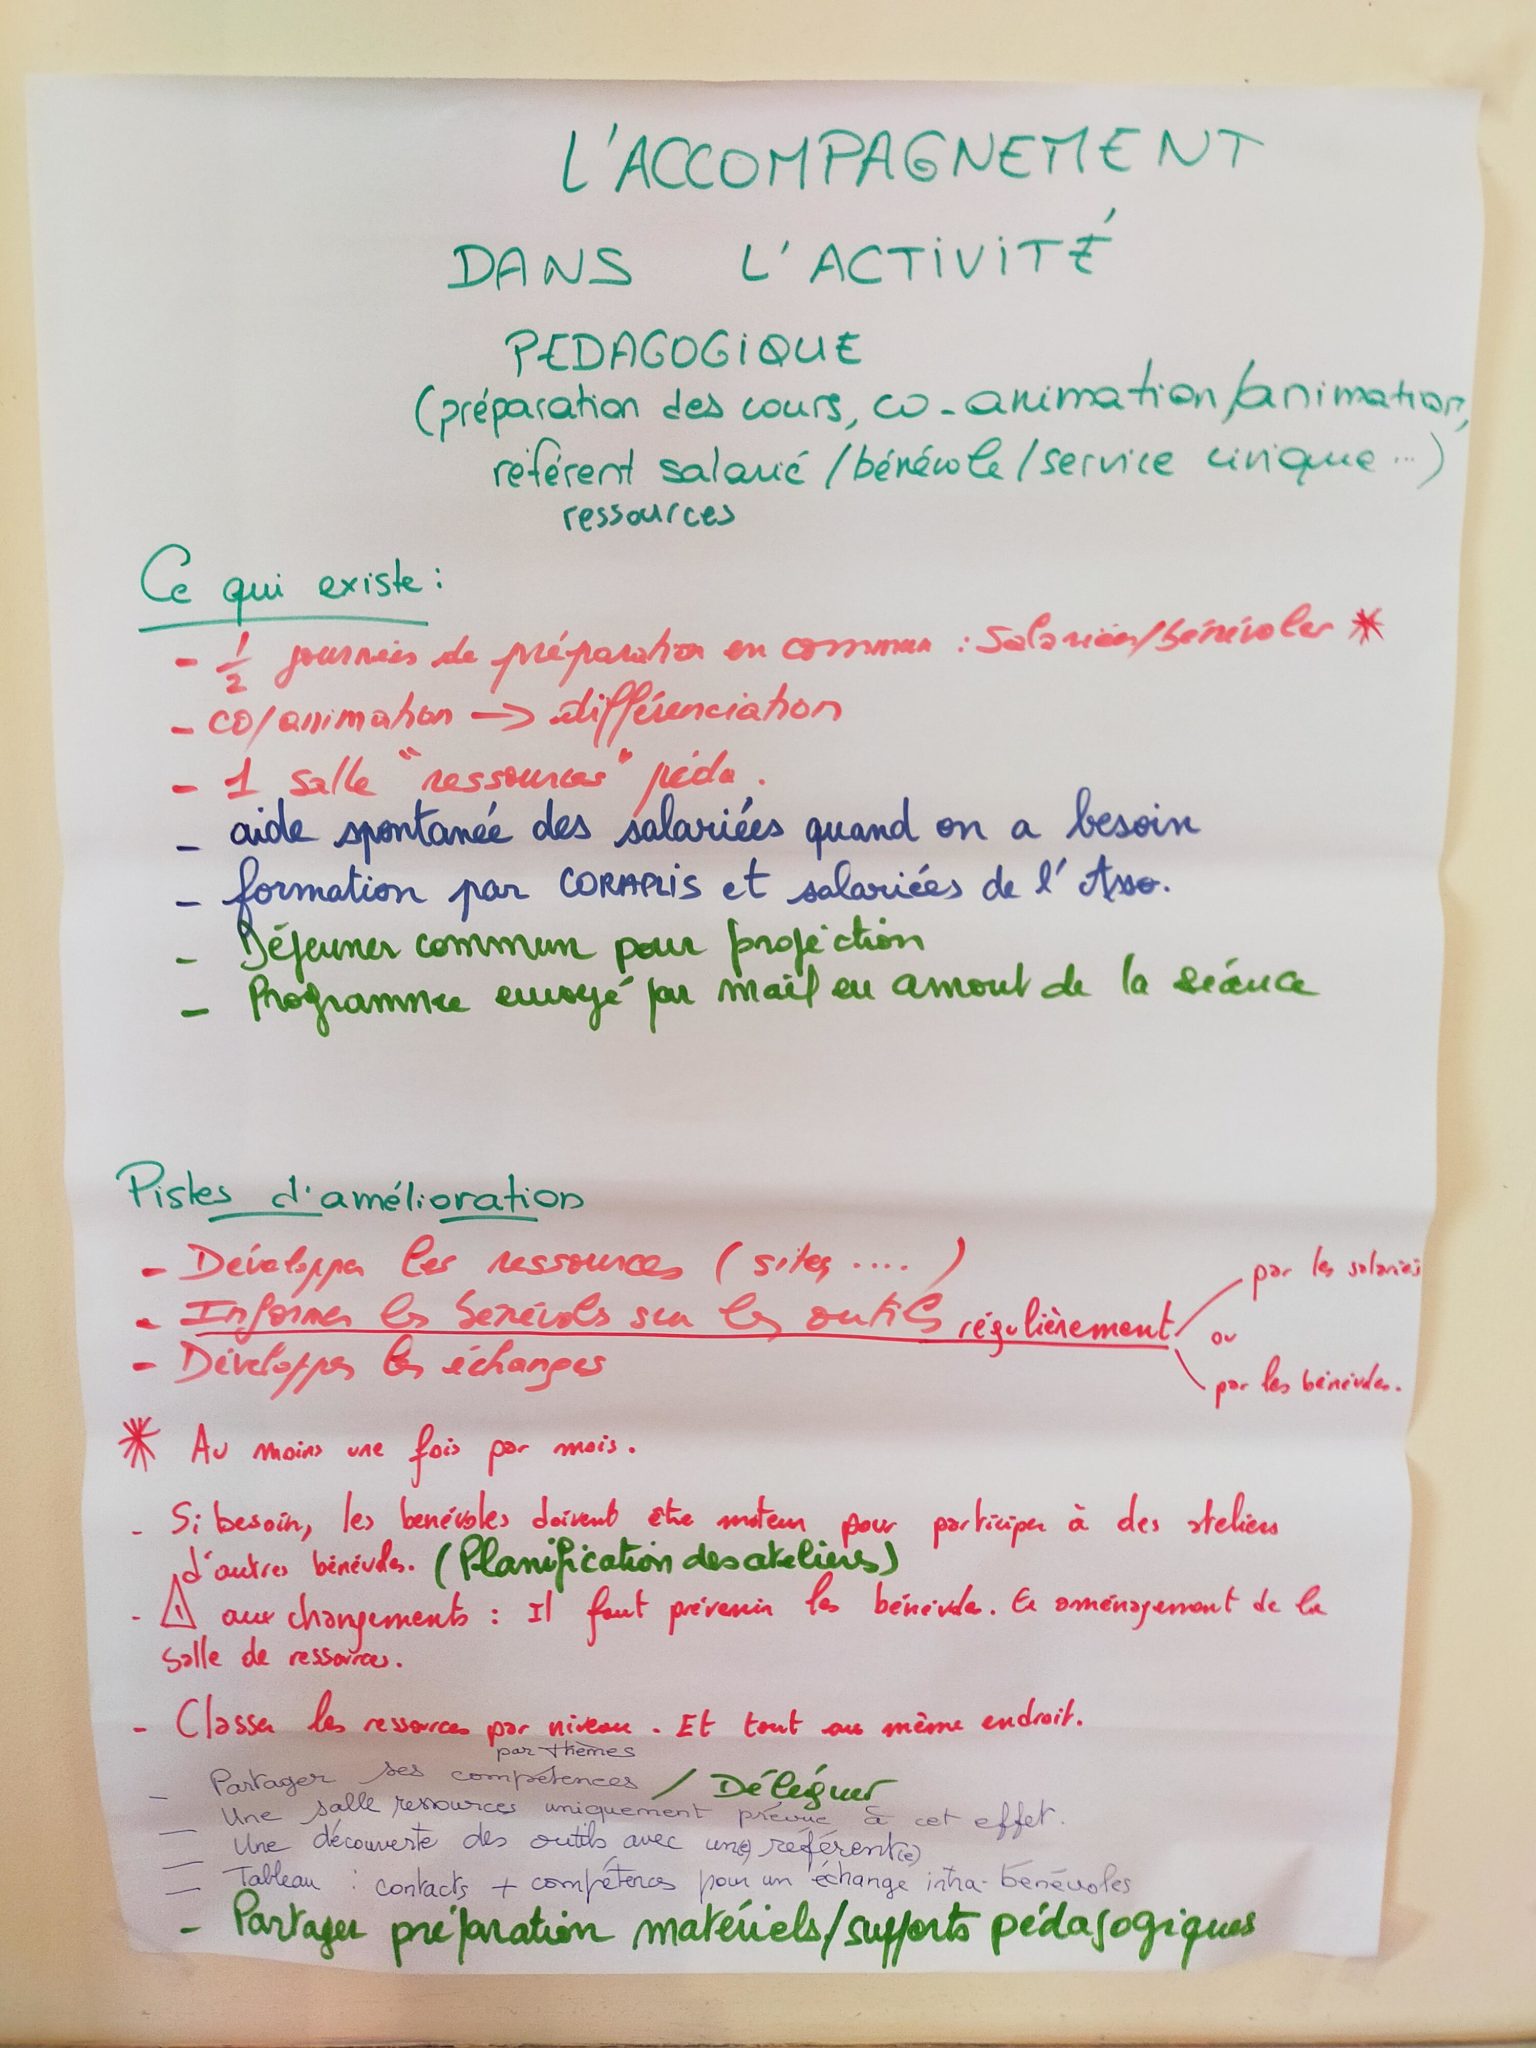 L'ACCOMPAGNEMENT
DANS L'ACTIVITÉ
PEDAGOGIQUE
(préparation des cours, co-animation/animation,
référent salarié/bénévole/service civique...)
ressources
Ce qui existe :
- 1/2 journées de préparation en commun : Salariées/bénévoles *
- co/animation -> différenciation
- 1 salle "ressources" péda.
- aide spontanée des salariées quand on a besoin
- formation par CORAPLIS et salariées de l'Asso.
- Déjeuner commun pour projection
- Programme envoyé par mail en amont de la séance
Pistes d'amélioration
- Développer les ressources (sites, ....)
- Informer les bénévols sur les outils régulièrement
par les salariés
ou
par les bénévoles.
- Développer les échanges
* Au moins une fois par mois.
- Si besoin, les bénévoles doivent être moteur pour participer à des ateliers
d'autres bénévoles. (Planification des ateliers)
- ⚠ aux changements : Il faut prévenir les bénévoles. Ex aménagement de la
salle de ressources.
- Classer les ressources par niveau. Et tout au même endroit.
par thèmes
- Partager ses compétences / Déléguer
- Une salle ressources uniquement prévue à cet effet.
- Une découverte des outils avec un(e) référent(e)
- Tableau : contacts + compétences pour un échange intra-bénévoles
- Partager préparation matériels/supports pédagogiques